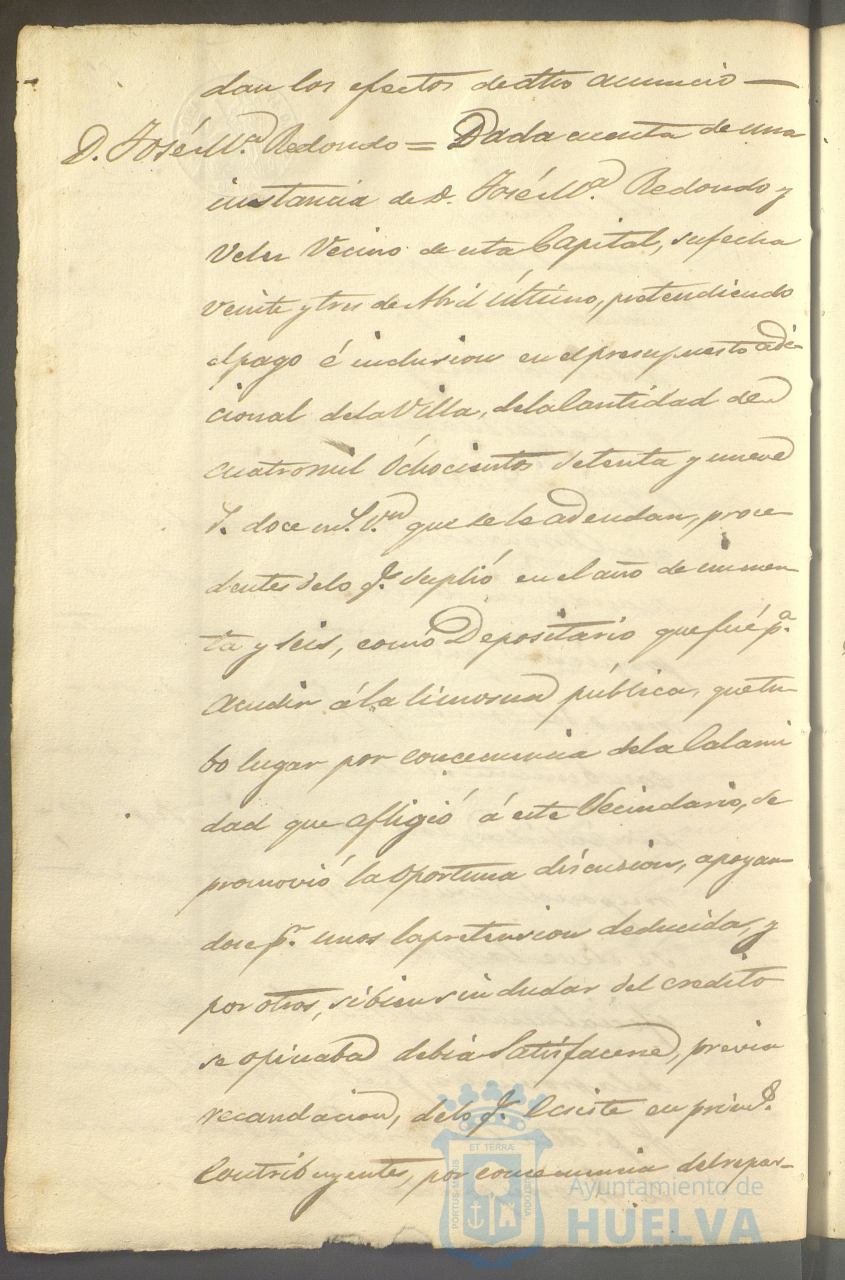 dan los efectos de dho anuncio —
D. José Mª. Redondo = Dada cuenta de una
instancia de D. José Mª. Redondo y
Velez Vecino de esta Capital, su fecha
veinte y tres de Abril último, pretendiendo
el pago é inclusion en el presupuesto adi-
cional de la Villa, de la Cantidad de
cuatro mil Ochocientos setenta y nueve
r. doce ms. vn que se le adeudan, proce-
dentes de lo q. suplió en el año de
ta y seis, como Depositario que fué pª.
acudir á la limosna pública, que tu-
bo lugar por concecuencia de la Calami
dad que afligió á este Vecindario, se
promovió la oportuna discusion, apoyan-
dose pr. unos la pretension deducida, y
por otros, si bien sin dudar del credito
se opinaba debia Satisfacerse, previa
recaudacion, de lo q. Ecsiste en prims.
Contribuyentes, por concecuencia del repar-
ET TERRÆ
PORTUS MARIS
CUSTODIA
Ayuntamiento de
HUELVA